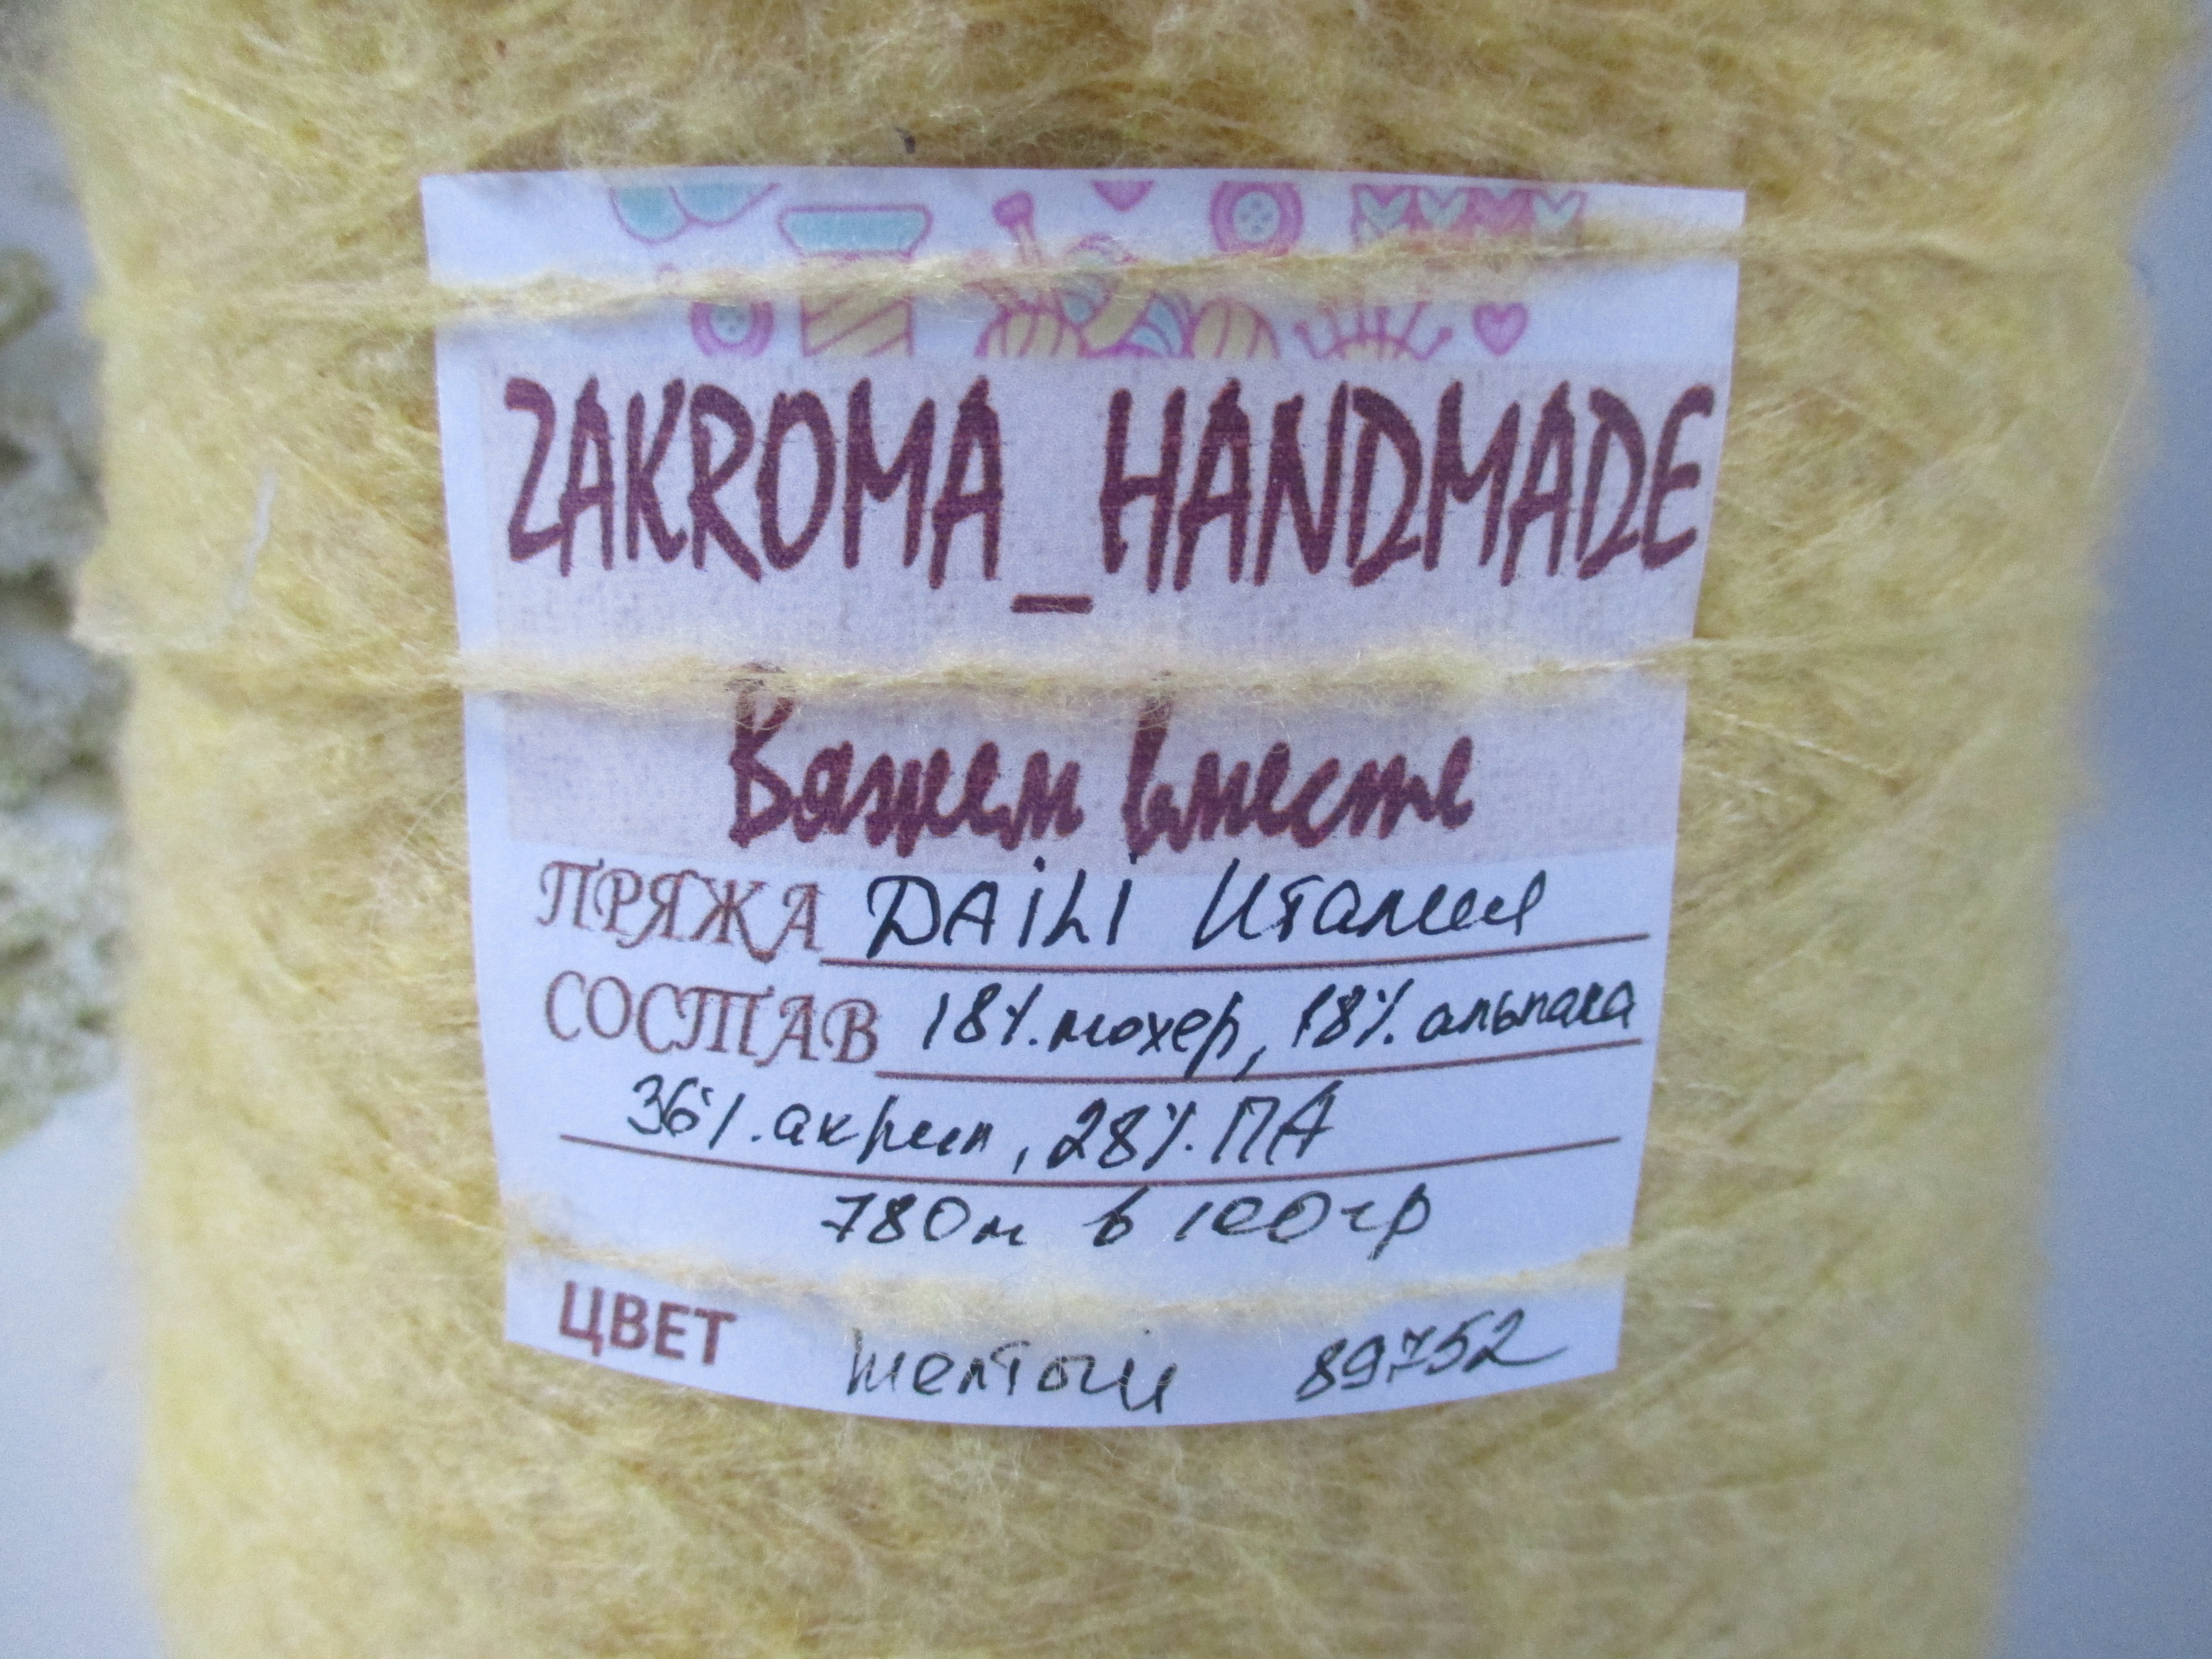 ZAKROMA_HANDMADE
Вяжем вместе
ПРЯЖА DAiLi Италия
СОСТАВ 18% мохер, 18% альпака
36% акрил, 28% ПА
780м в 100гр
ЦВЕТ желтый 89752